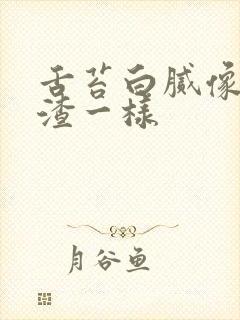 舌苔白腻像
渣一样
月谷鱼